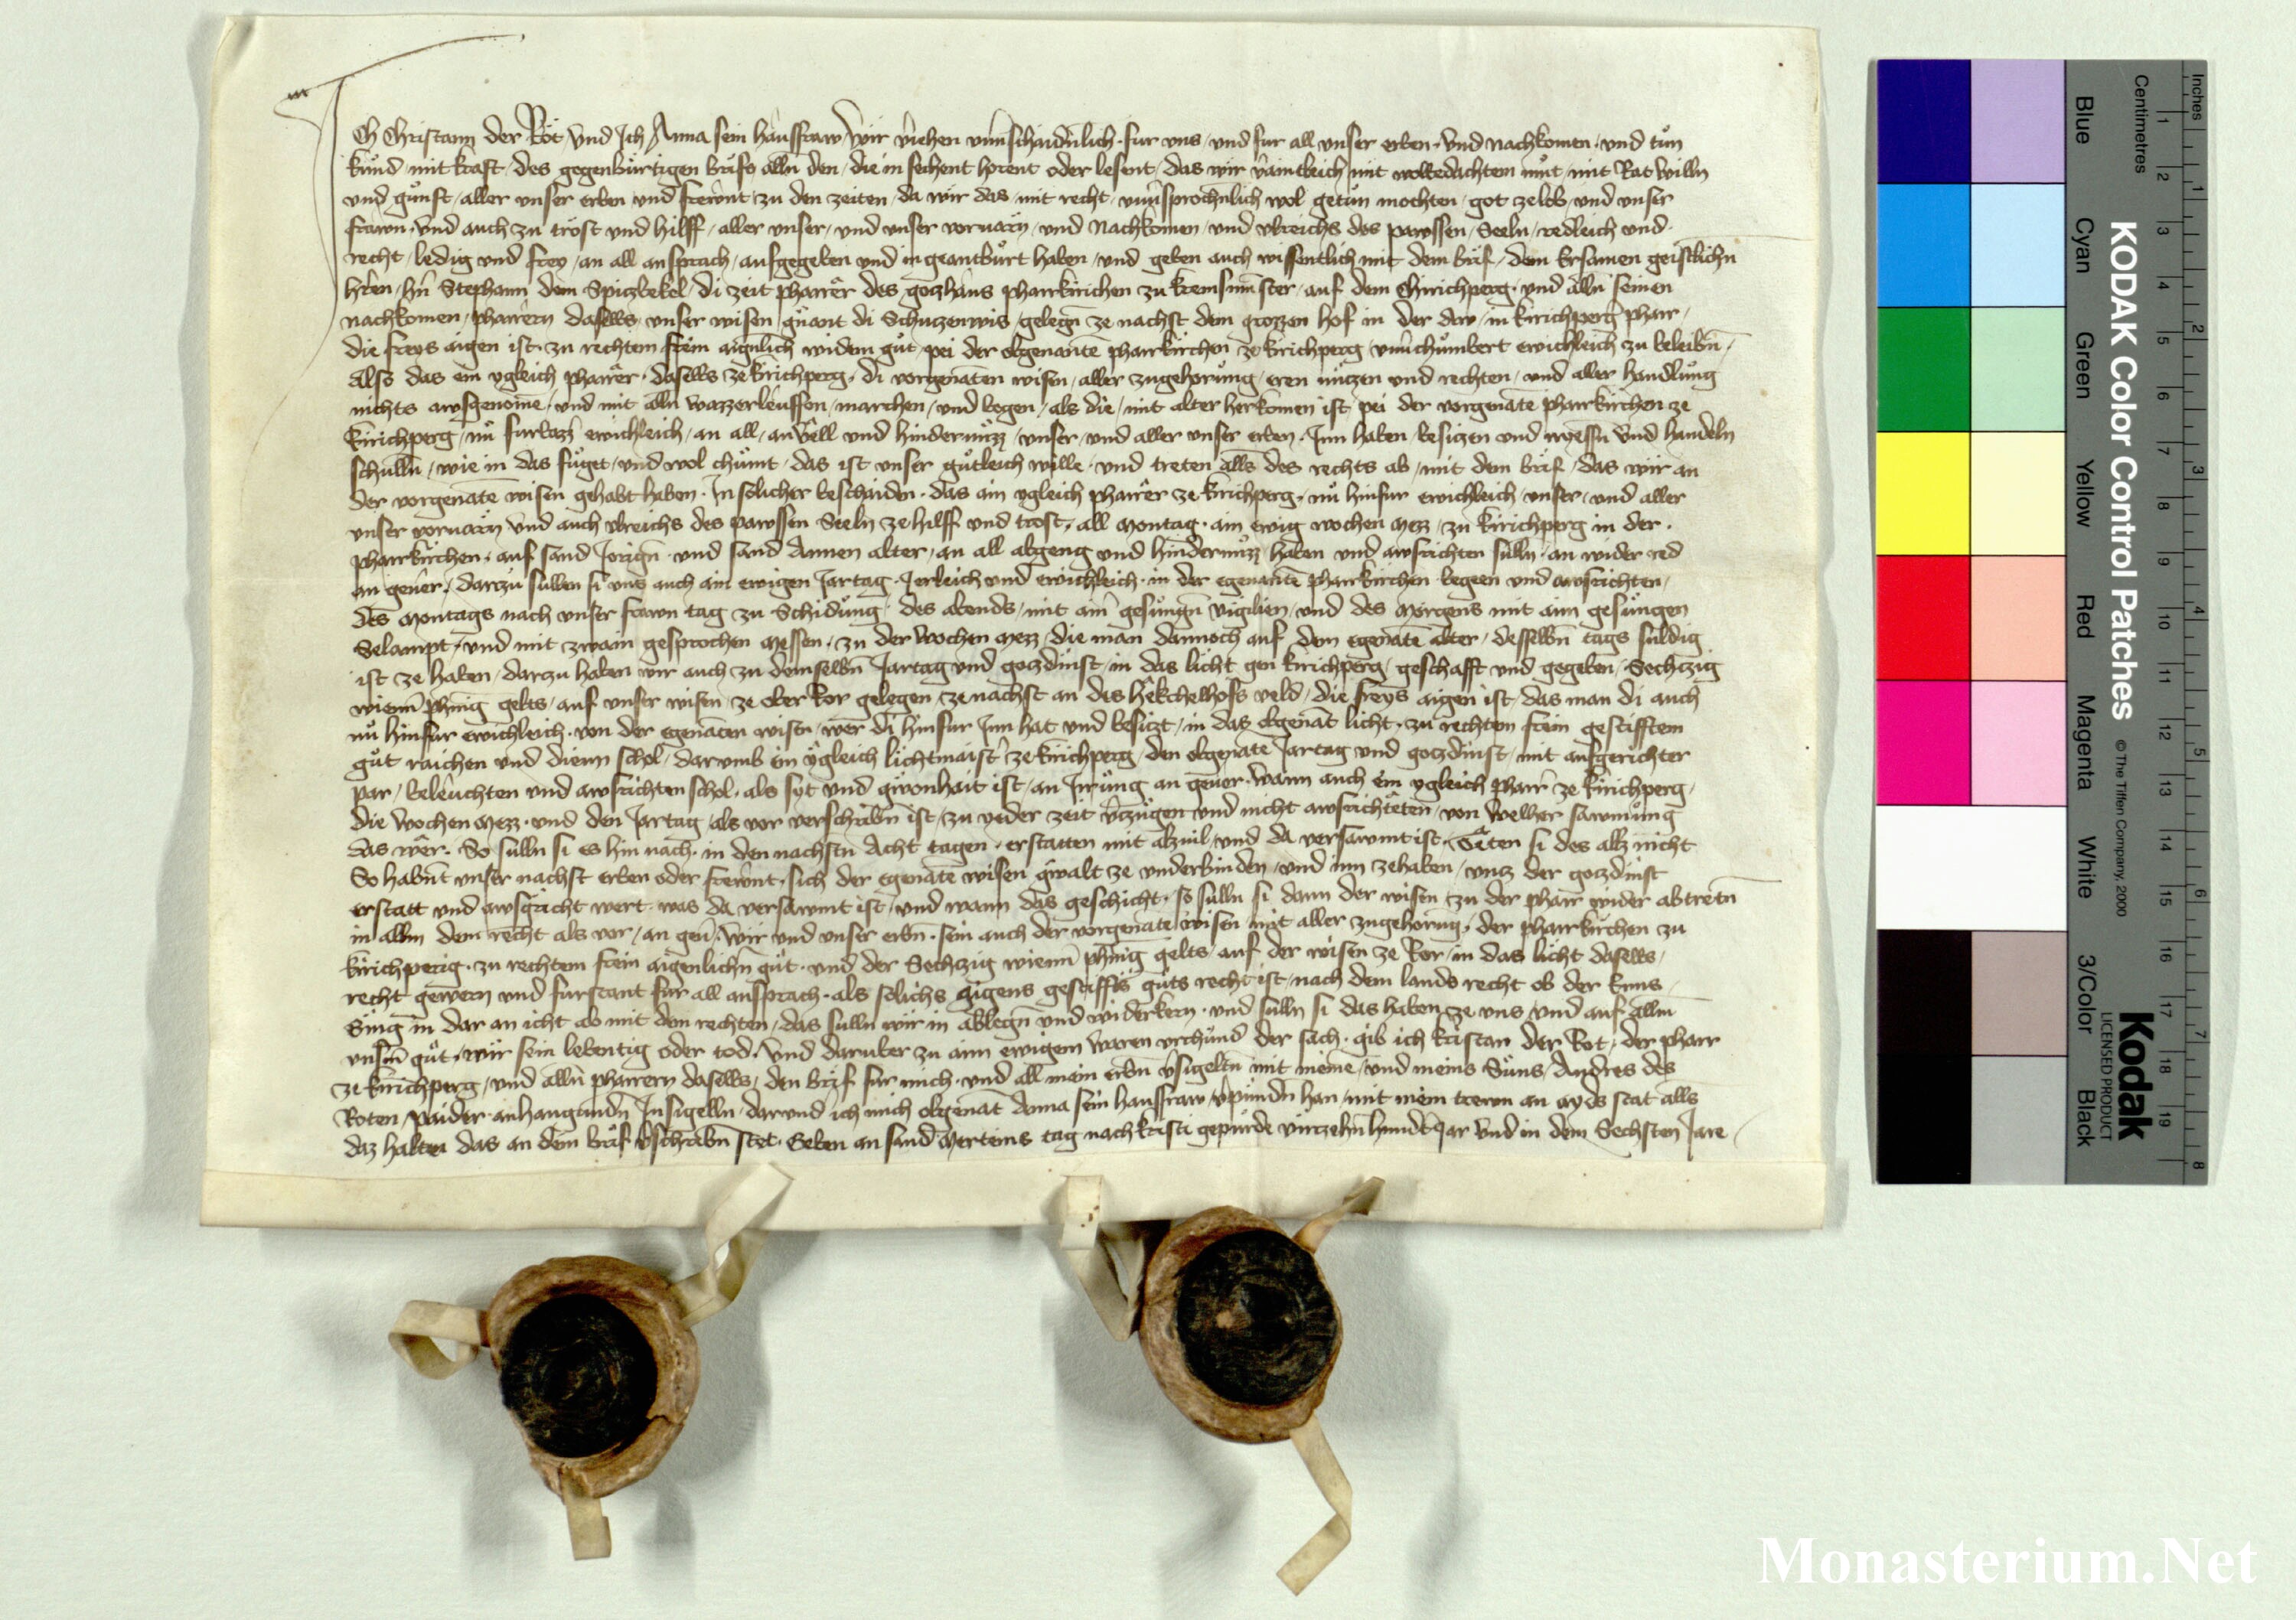 Ich Christann der Röt und Ich Anna sein hausfraw wir v̂iehen vnuerschaidn̄lich fur vns und fur all vnser erben und nachkomen und tůn
kůnd mit kraft des gegenbürtigen briefs alln̄ den die in sehent horent oder lesent das wir mit wolbedachtem můt mit Rat willn̄
und gůnst aller vnser erben und frewnt zu den zeiten da wir das mit recht wol getůn mochten got ze lob und vnser
frawn und auch zu tröst und hilff aller vnser und vnser voruarn̄ und Nachkomen und vlreichs des parssen Seeln redleich und
recht ledig und frey an all ansprach aufgegeben und in geantbůrt haben und geben auch wissentlich mit dem brief dem Ersamen geistlichn̄
h̄ren hn̄ Stephann dem Spiczbekel di zeit pharrer des gozhaus pharrkirichen zu kremsmūnster auf dem Chirichperg und alln̄ seinen
nachkomen pharrern daselbs vnser wisen gnant di Schuczenwis gelegn̄ ze nachst dem grozzen hof in der Aw in kirichperḡ pharr
die freys aigen ist zu rechtem frein aignlich widem gůt pei der obgenantē pharrkirchen ze kirichperg ewichleich zu beleibn̄
also das ein ygleich pharrer daselbs ze kirichperg di vorgenāten wisen aller zugehorůng eren nůczen und rechten und aller handlůng
nichts awsgenomē und mit alln̄ wazzerleuffen marchen und wegen als die mit alter herkomen ist pei der vorgenātē pharrkirchen ze
kirichperg nů furbazz ewichleich an all anvell und hindernůzz vnser und aller vnser erben Inn haben besiczen und nyessn̄ und handeln
schulln̄ wie in das fůget und wol chůmt das ist vnser gůtleich wille und treten alls des rechts ab mit dem brief das wir an
der vorgenātē wisen gehabt haben In solicher beschaiden das ain ygleich pharrer ze kirichperg nů hinfur ewichleich vnser und aller
vnser voruarn̄ und auch vlreichs des parssen Seeln ze hilff und trost all Montag ain ewig wochen Mezz zu kirichperg in der
pharrkirchen auf sand Jorign̄ und sand Annen alter an all abgeng und hindernůzz haben und awsrichten sulln an wider red
an geuer darzu sullen si vns auch ain ewigen Jartag Jerleich und ewichleich in der egenantē pharrkirchen begeen und awsrichten
des Montags nach vnser frawn tag zu Schidůng des abends mit ain̄ gesůngn̄ vigilien und des Morgens mit ain gesůngen
Selampt und mit zwain gesprochen Messen zu der Wochen Mezz die man dannoch auf dem egenātē alter desselbn̄ tags suldig
ist ze haben darzu haben wir auch zu demselbn̄ Jartag und gozdinst in das licht gen kirichperg geschafft und gegeben Sechczig
wienn̄ phn̄ig gelts auf vnser wisen ze ober Ror gelegen ze nachst an des hekchelhofs veld die freys aigen ist das man di auch
nů hinfur ewichleich von der egenāten wisn̄ wer di hinfur Inn hat und besiczt in das obgenāt licht zu rechtem frein gestifftem
gůt raichen und dienn schol darumb ein ygleich lichtmaist̄ ze kirichperg den obgenātē Jartag und gozdinst mit aufgerichter
par beleuchten und awsrichten schol als syt und gwonhait ist an Jrrůng an geuer Wann auch ein ygleich pharr̄ ze kirichperg
die Wochen Mezz und den Jartag als vor verschribn̄ ist zu yeder zeit v̄czugen und nicht awsrichteten von welher sawmůng
das wer So sulln si es hin nach in den nachstn̄ Acht tagen erstatten mit alzuil und da versawmt ist Teten si des alz nicht
So habn̄t vnser nachst erben oder frewnt sich der egenātē wisen gwalt ze vnderbinden und inn ze haben vncz der gozdinst
erstatt und awsgricht wert was da versawmt ist und wann das geschicht so sulln si dann der wisen zu der pharr wider abtretn̄
in allm dem recht als vor an geu̅ Wir und vnser erbn̄ sein auch der vorgenātē wisen mit aller zugehorūg der pharrkirchen zu
kirichperig zu rechtem frein aigenlichn̄ gůt und der Sechczig wienn̄ phn̄ig gelts auf der wisen ze Ror in das licht daselbs
recht gewern und furstant fur all ansprach als solichs aigens gestiffts gůts recht ist nach dem lands recht ob der Enns
Ging in dar an icht ab mit dem rechten das sulln wir in ablegn̄ und widerkern und sulln si das haben ze vns und auf allm
vnsm̄ gůt wir sein lebentig oder tod Und daruber zu ainn ewigem waren vrchůnd der sach gib ich kristan der Rot der pharr
ze kirichperg und alln̄ pharrern daselbs den brief fur mich und all mein erbn̄ v̄sigeltn̄ mit meinē und meins Sůns Andres des
Roten paider anhangundn̄ Insigelln darund ich mich obgenāt Anna sein hausfraw v̄půndn̄ han mit mein trewn an ayds stat alls
daz halten das an dem brief v̄schribn̄ stet Geben an sand Merteins tag nach kristi gepurde virczehn̄ hundt̄ Jar und in dem Sechsten Jare
Inches
Centimetres
KODAK Color Control Patches
© The Tiffen Company, 2000
Kodak
LICENSED PRODUCT
Blue
Cyan
Green
Yellow
Red
Magenta
White
3/Color
Black
Monasterium.Net